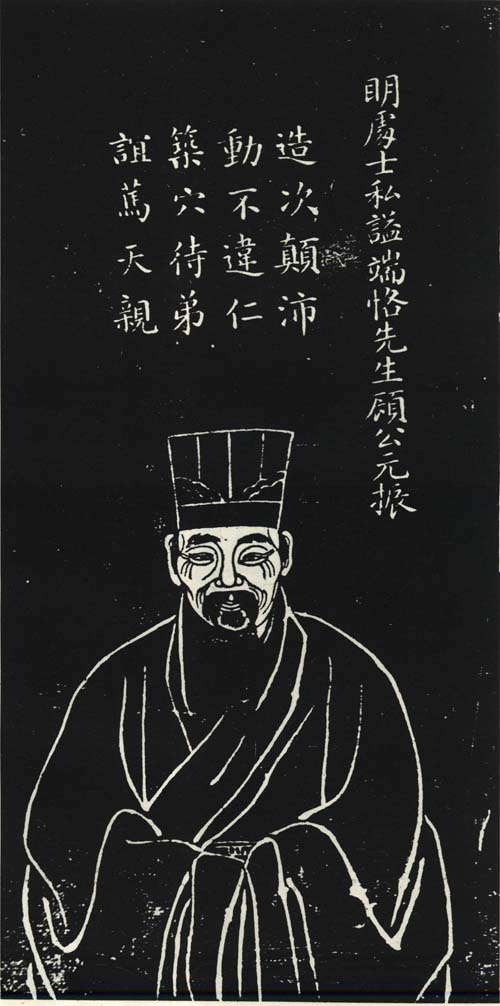 明處士私諡端恪先生顧公元振
造次顛沛
動不違仁
築穴待弟
誼篤天親